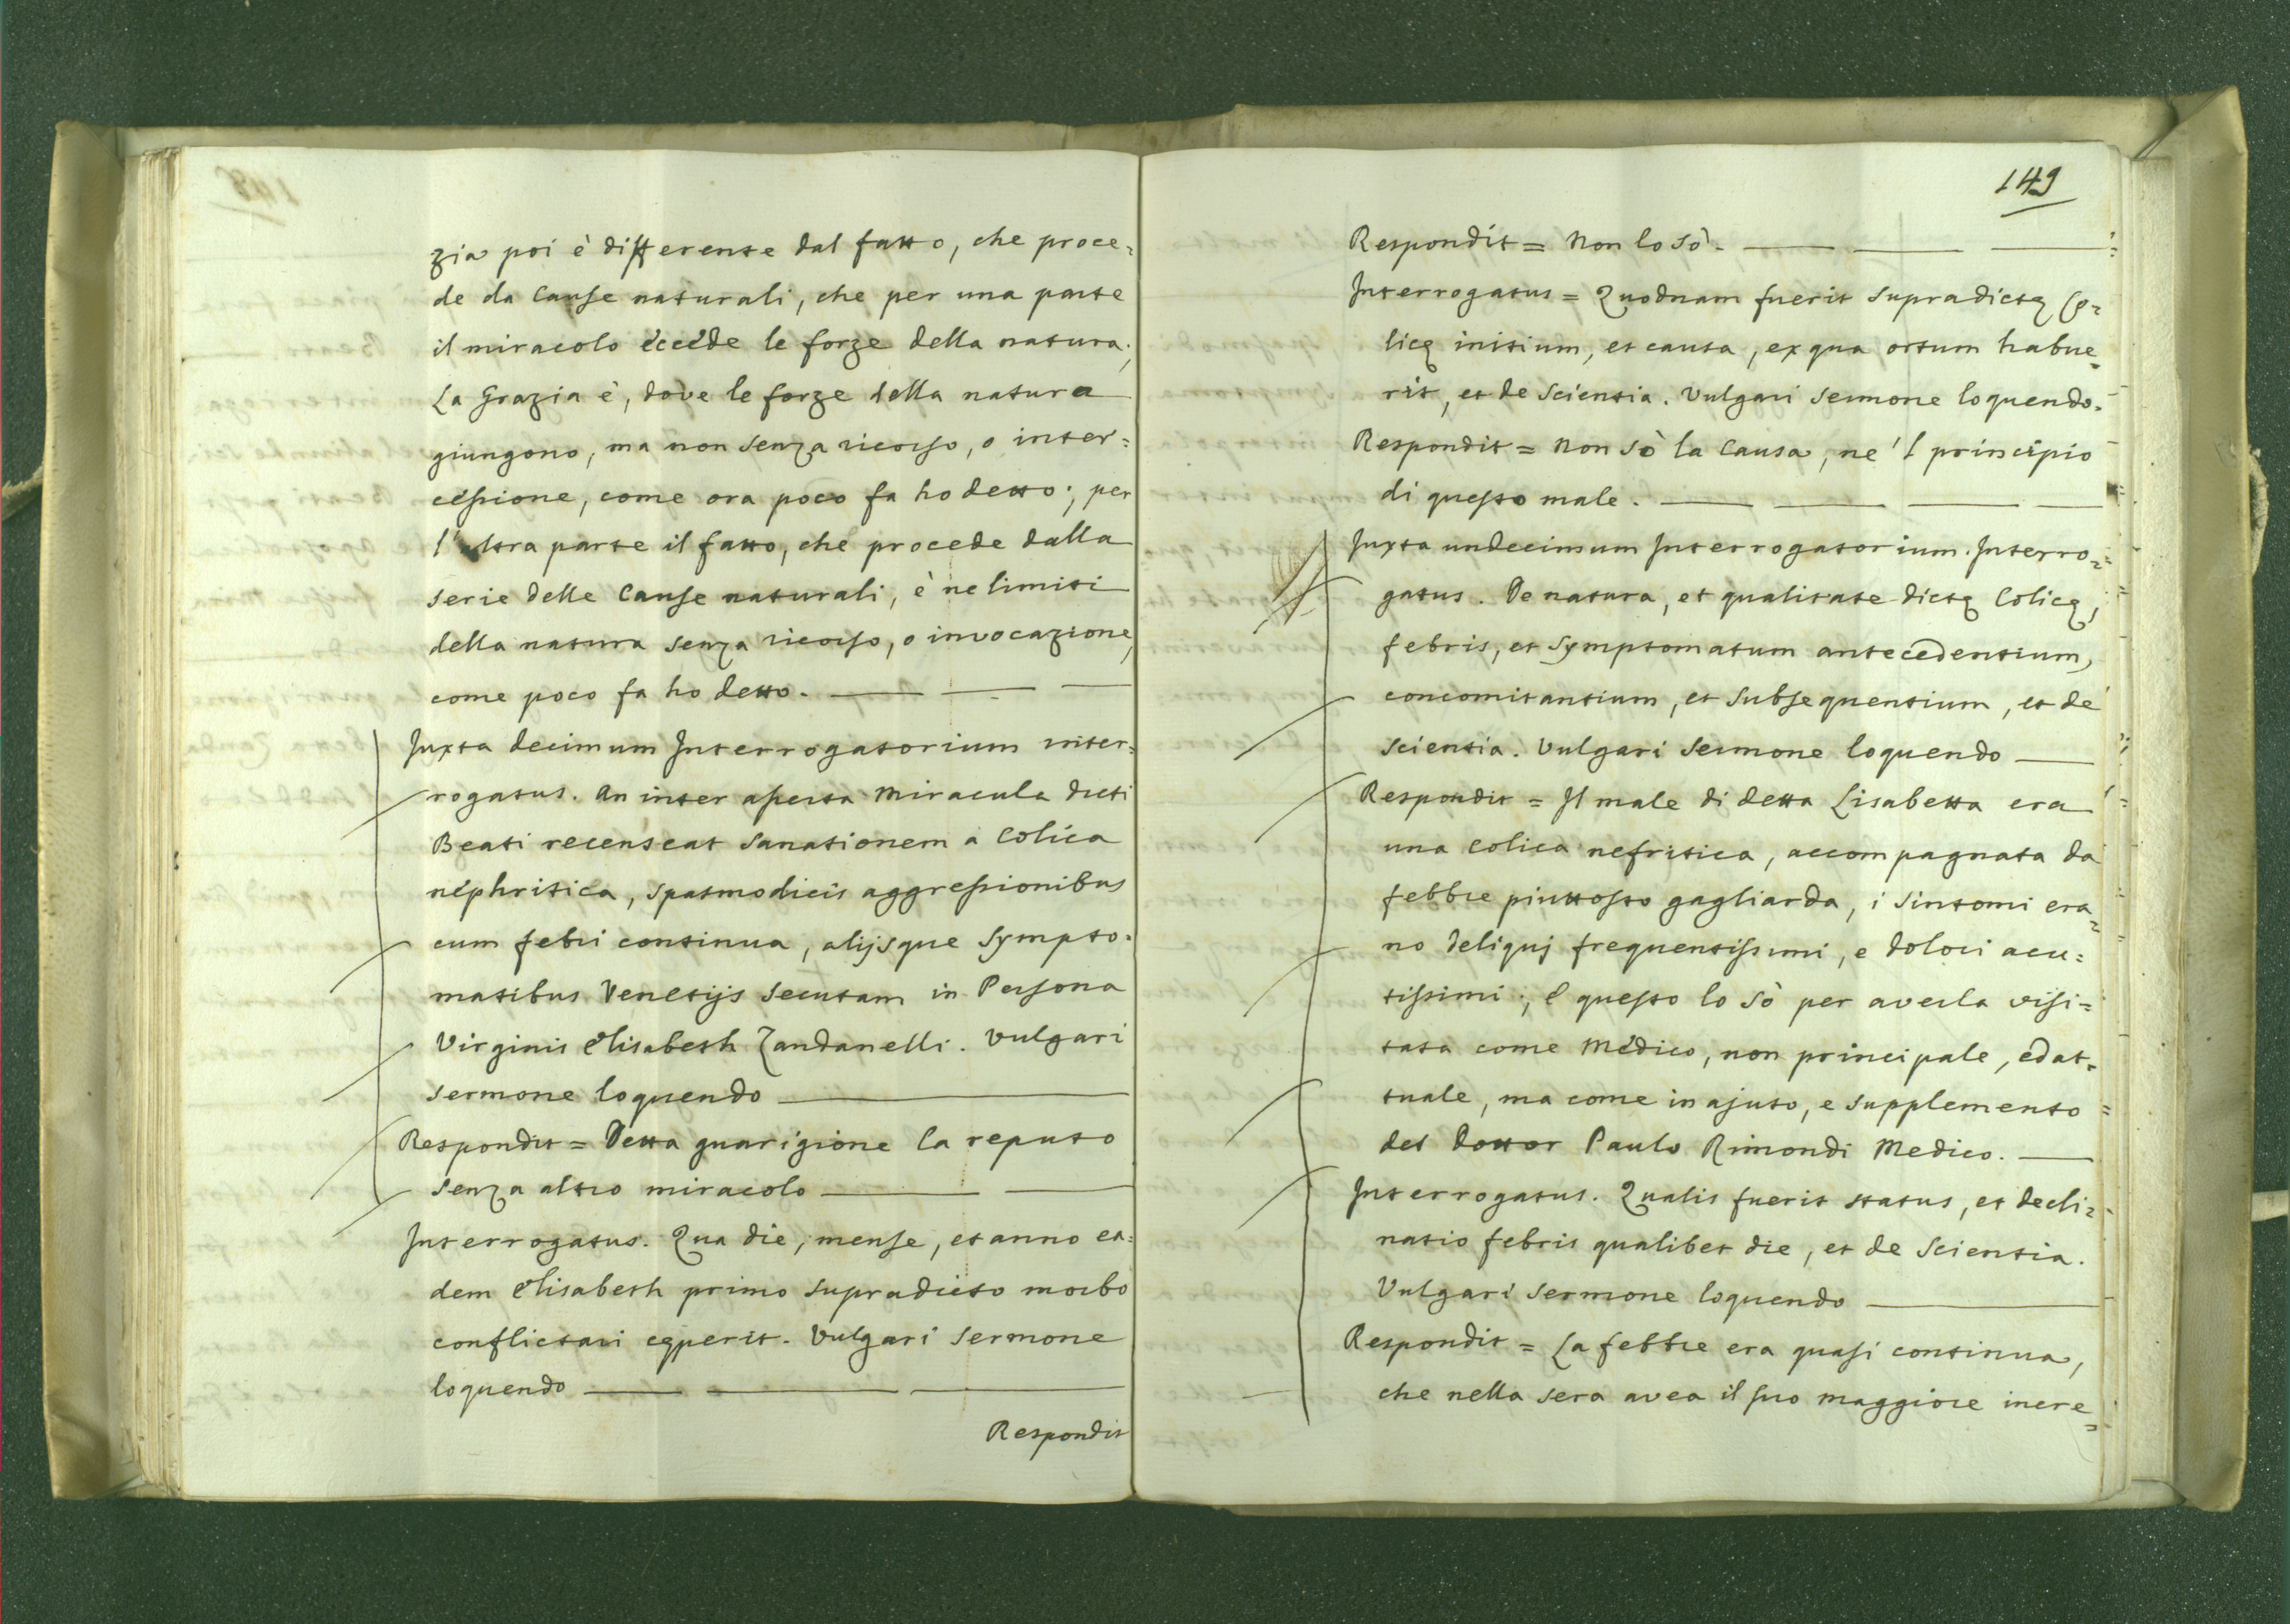 zia poi è differente dal fatto, che proce=
de da Cause naturali, che per una parte
il miracolo eccede le forze della natura;
La Grazia è, dove le forze della natura
giungono, ma non senza ricorso, o inter=
cessione, come ora poco fa ho detto; per
l'altra parte il fatto, che procede dalla
serie delle Cause naturali, è ne limiti
della natura senza ricorso, o invocazione,
come poco fa ho detto.
Juxta decimum Interrogatorium inter=
rogatus. An inter aperta Miracula dicti
Beati recenseat sanationem a Colica
nephritica, spasmodicis aggressionibus
cum febri continua, alijsque sympto=
matibus Venetijs secutam in Persona
Virginis Elisabeth Zandanelli. Vulgari
sermone loquendo
Respondit = Detta guarigione la reputo
senza altro miracolo
Interrogatus. Qua die, mense, et anno ea=
dem Elisabeth primo supradicto morbo
conflictari cęperit. Vulgari sermone
loquendo
Respondit
149
Respondit = Non lo sò.
Interrogatus = Quodnam fuerit supradictę Co=
licę initium, et causa, ex qua ortum habue=
rit, et de scientia. Vulgari sermone loquendo.
Respondit = Non sò la Causa, ne 'l principio
di questo male.
Juxta undecimum Interrogatorium. Interro=
gatus. De natura, et qualitate dictę Colicę,
febris, et symptomatum antecedentium,
concomitantium, et subsequentium, et de
scientia. Vulgari sermone loquendo
Respondit = Il male di detta Lisabetta era
una colica nefritica, accompagnata da
febbre piuttosto gagliarda, i sintomi era=
no deliquj frequentissimi, e dolori acu=
tissimi; e questo lo sò per averla visi=
tata come Medico, non principale, ed at=
tuale, ma come in ajuto, e supplemento
del Dottor Paulo Rimondi Medico.
Interrogatus. Qualis fuerit status, et decli=
natio febris qualibet die, et de scientia.
Vulgari sermone loquendo
Respondit = La febbre era quasi continua,
che nella sera avea il suo maggiore incre=